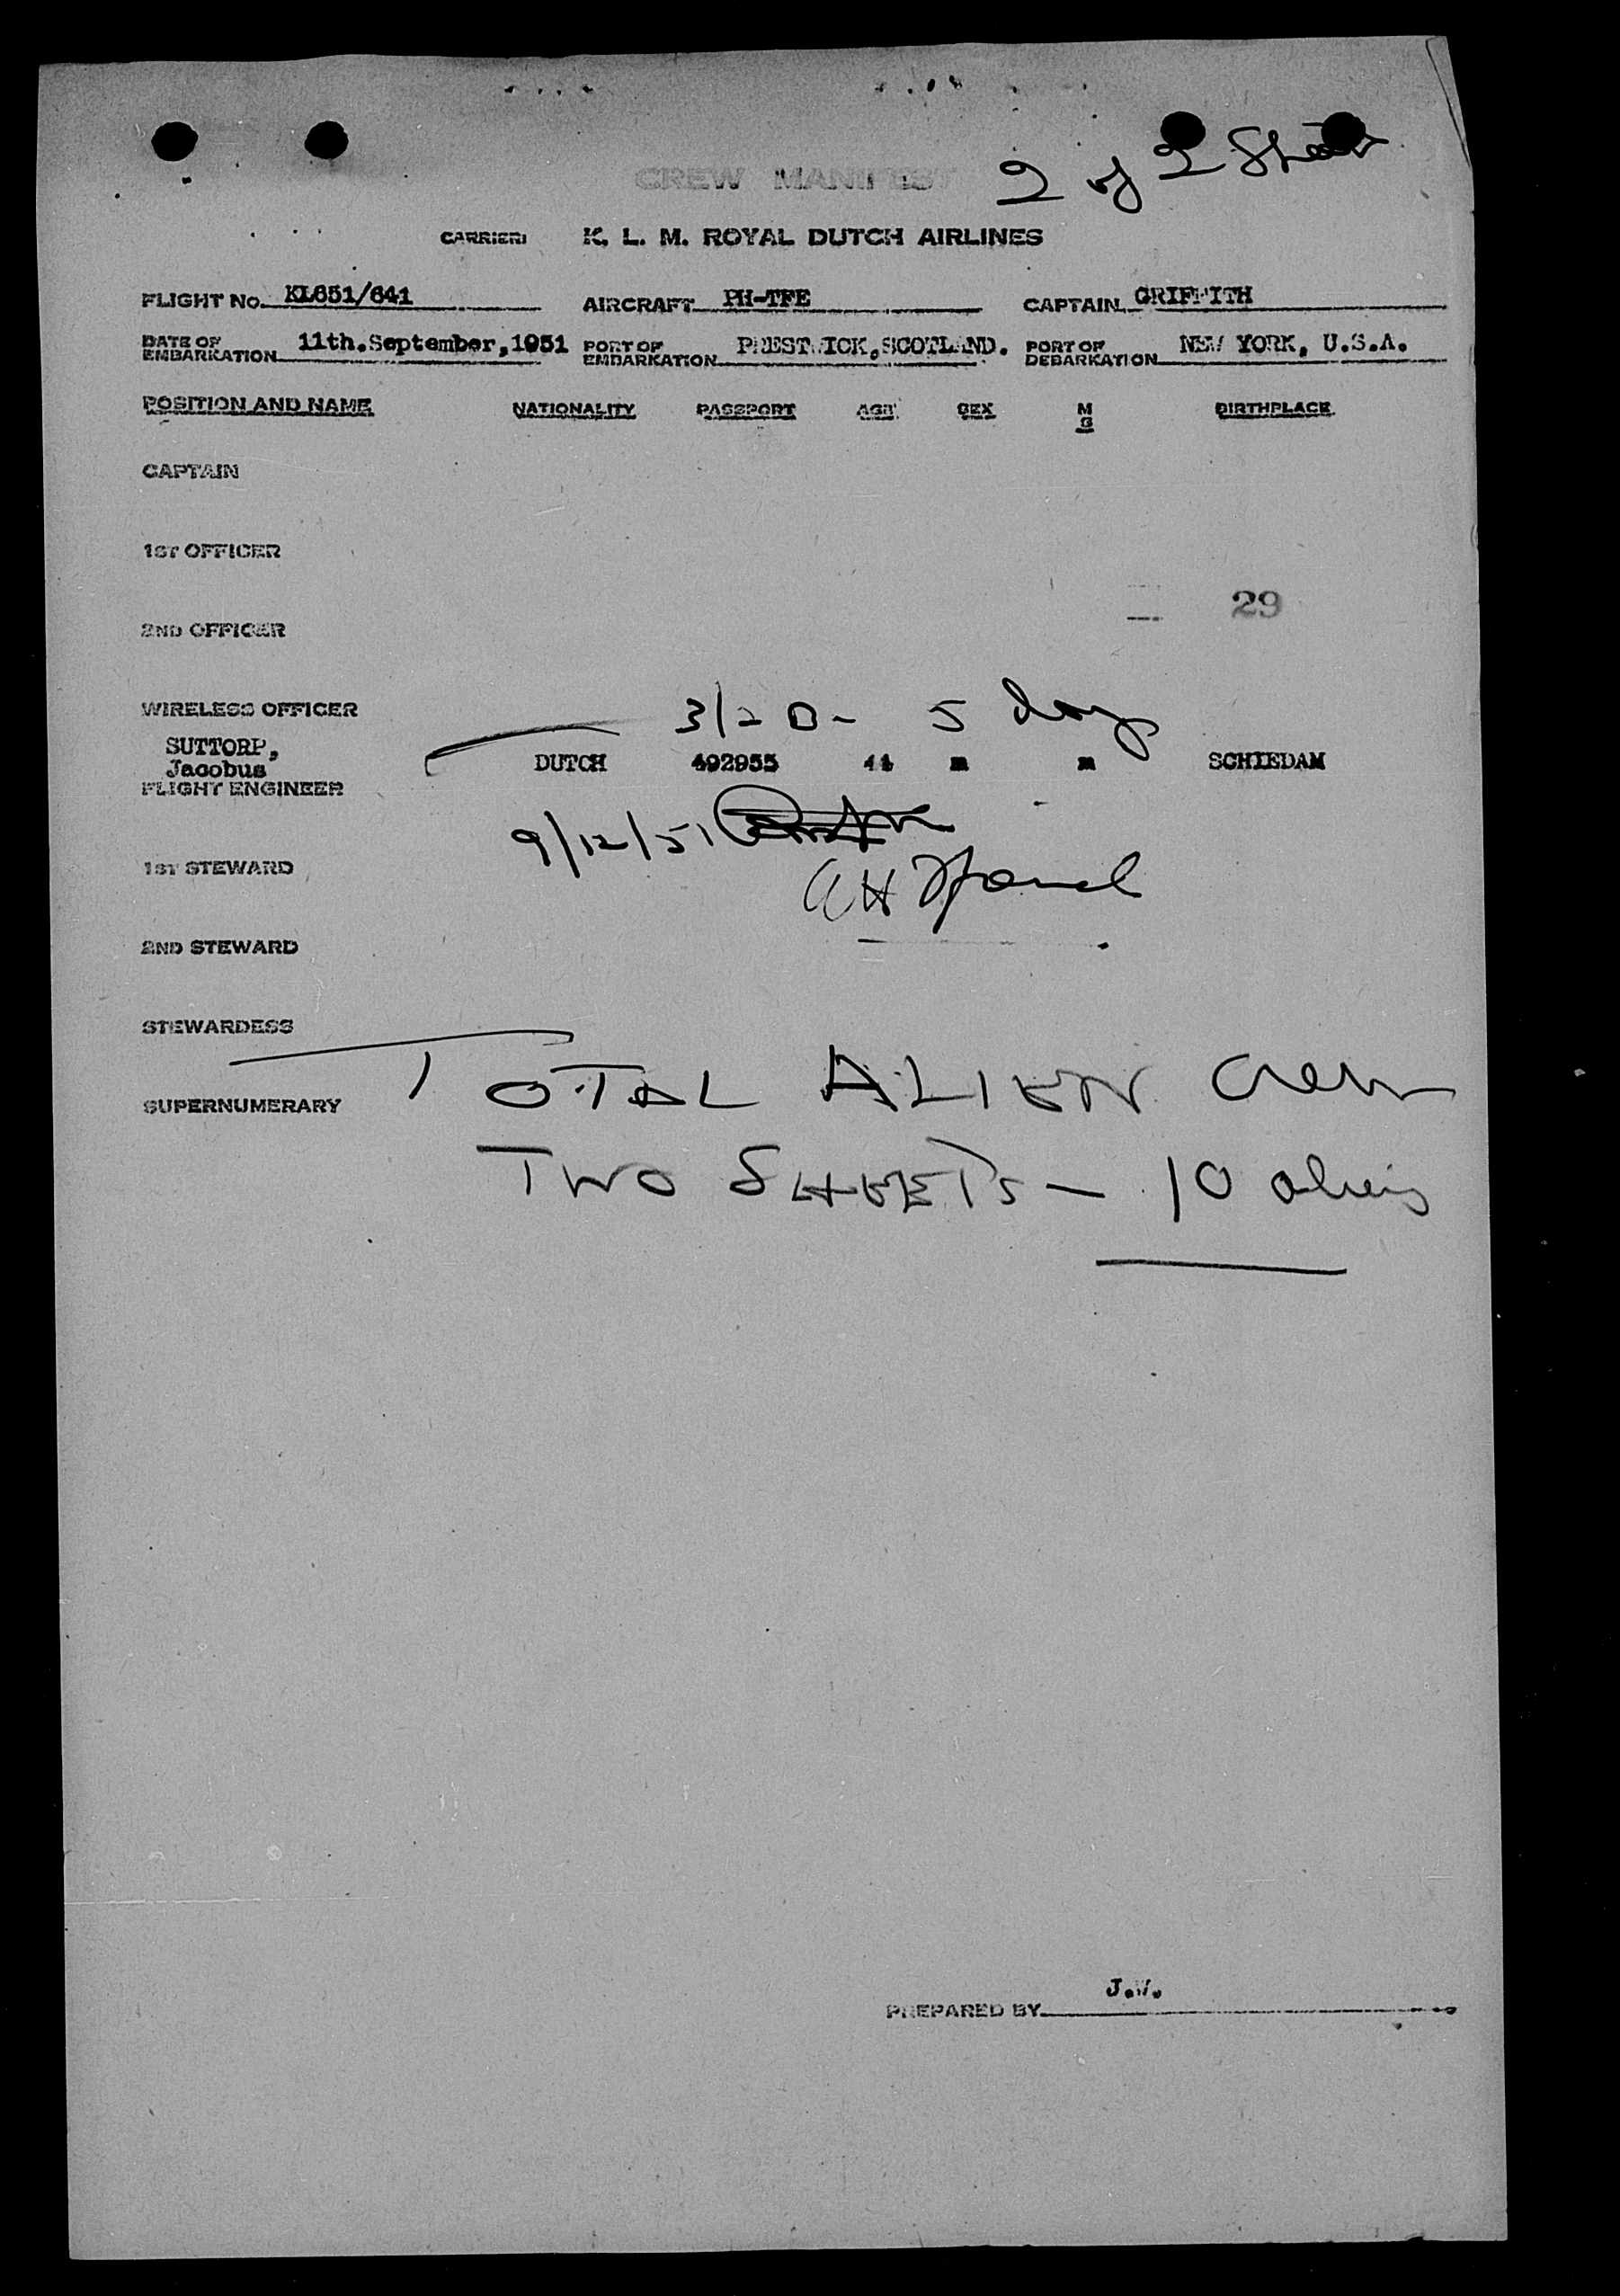 2 of 2 Sheets
CREW MANIFEST
CARRIER: K. L. M. ROYAL DUTCH AIRLINES
FLIGHT No. KL651/641 AIRCRAFT PH-TFE CAPTAIN GRIFFITH
DATE OF EMBARKATION 11th.September,1951 PORT OF EMBARKATION PRESTWICK,SCOTLAND. PORT OF DEBARKATION NEW YORK, U.S.A.
POSITION AND NAME NATIONALITY PASSPORT AGE SEX M S BIRTHPLACE
CAPTAIN
1ST OFFICER
29
2ND OFFICER
WIRELESS OFFICER
3/20- 5 days
SUTTORP,
Jacobus DUTCH 492955 44 m m SCHIEDAM
FLIGHT ENGINEER
9/12/51
1ST STEWARD
2ND STEWARD
STEWARDESS
TOTAL ALIEN Crew
SUPERNUMERARY
TWO SHEETS - 10 aliens
J.W.
PREPARED BY